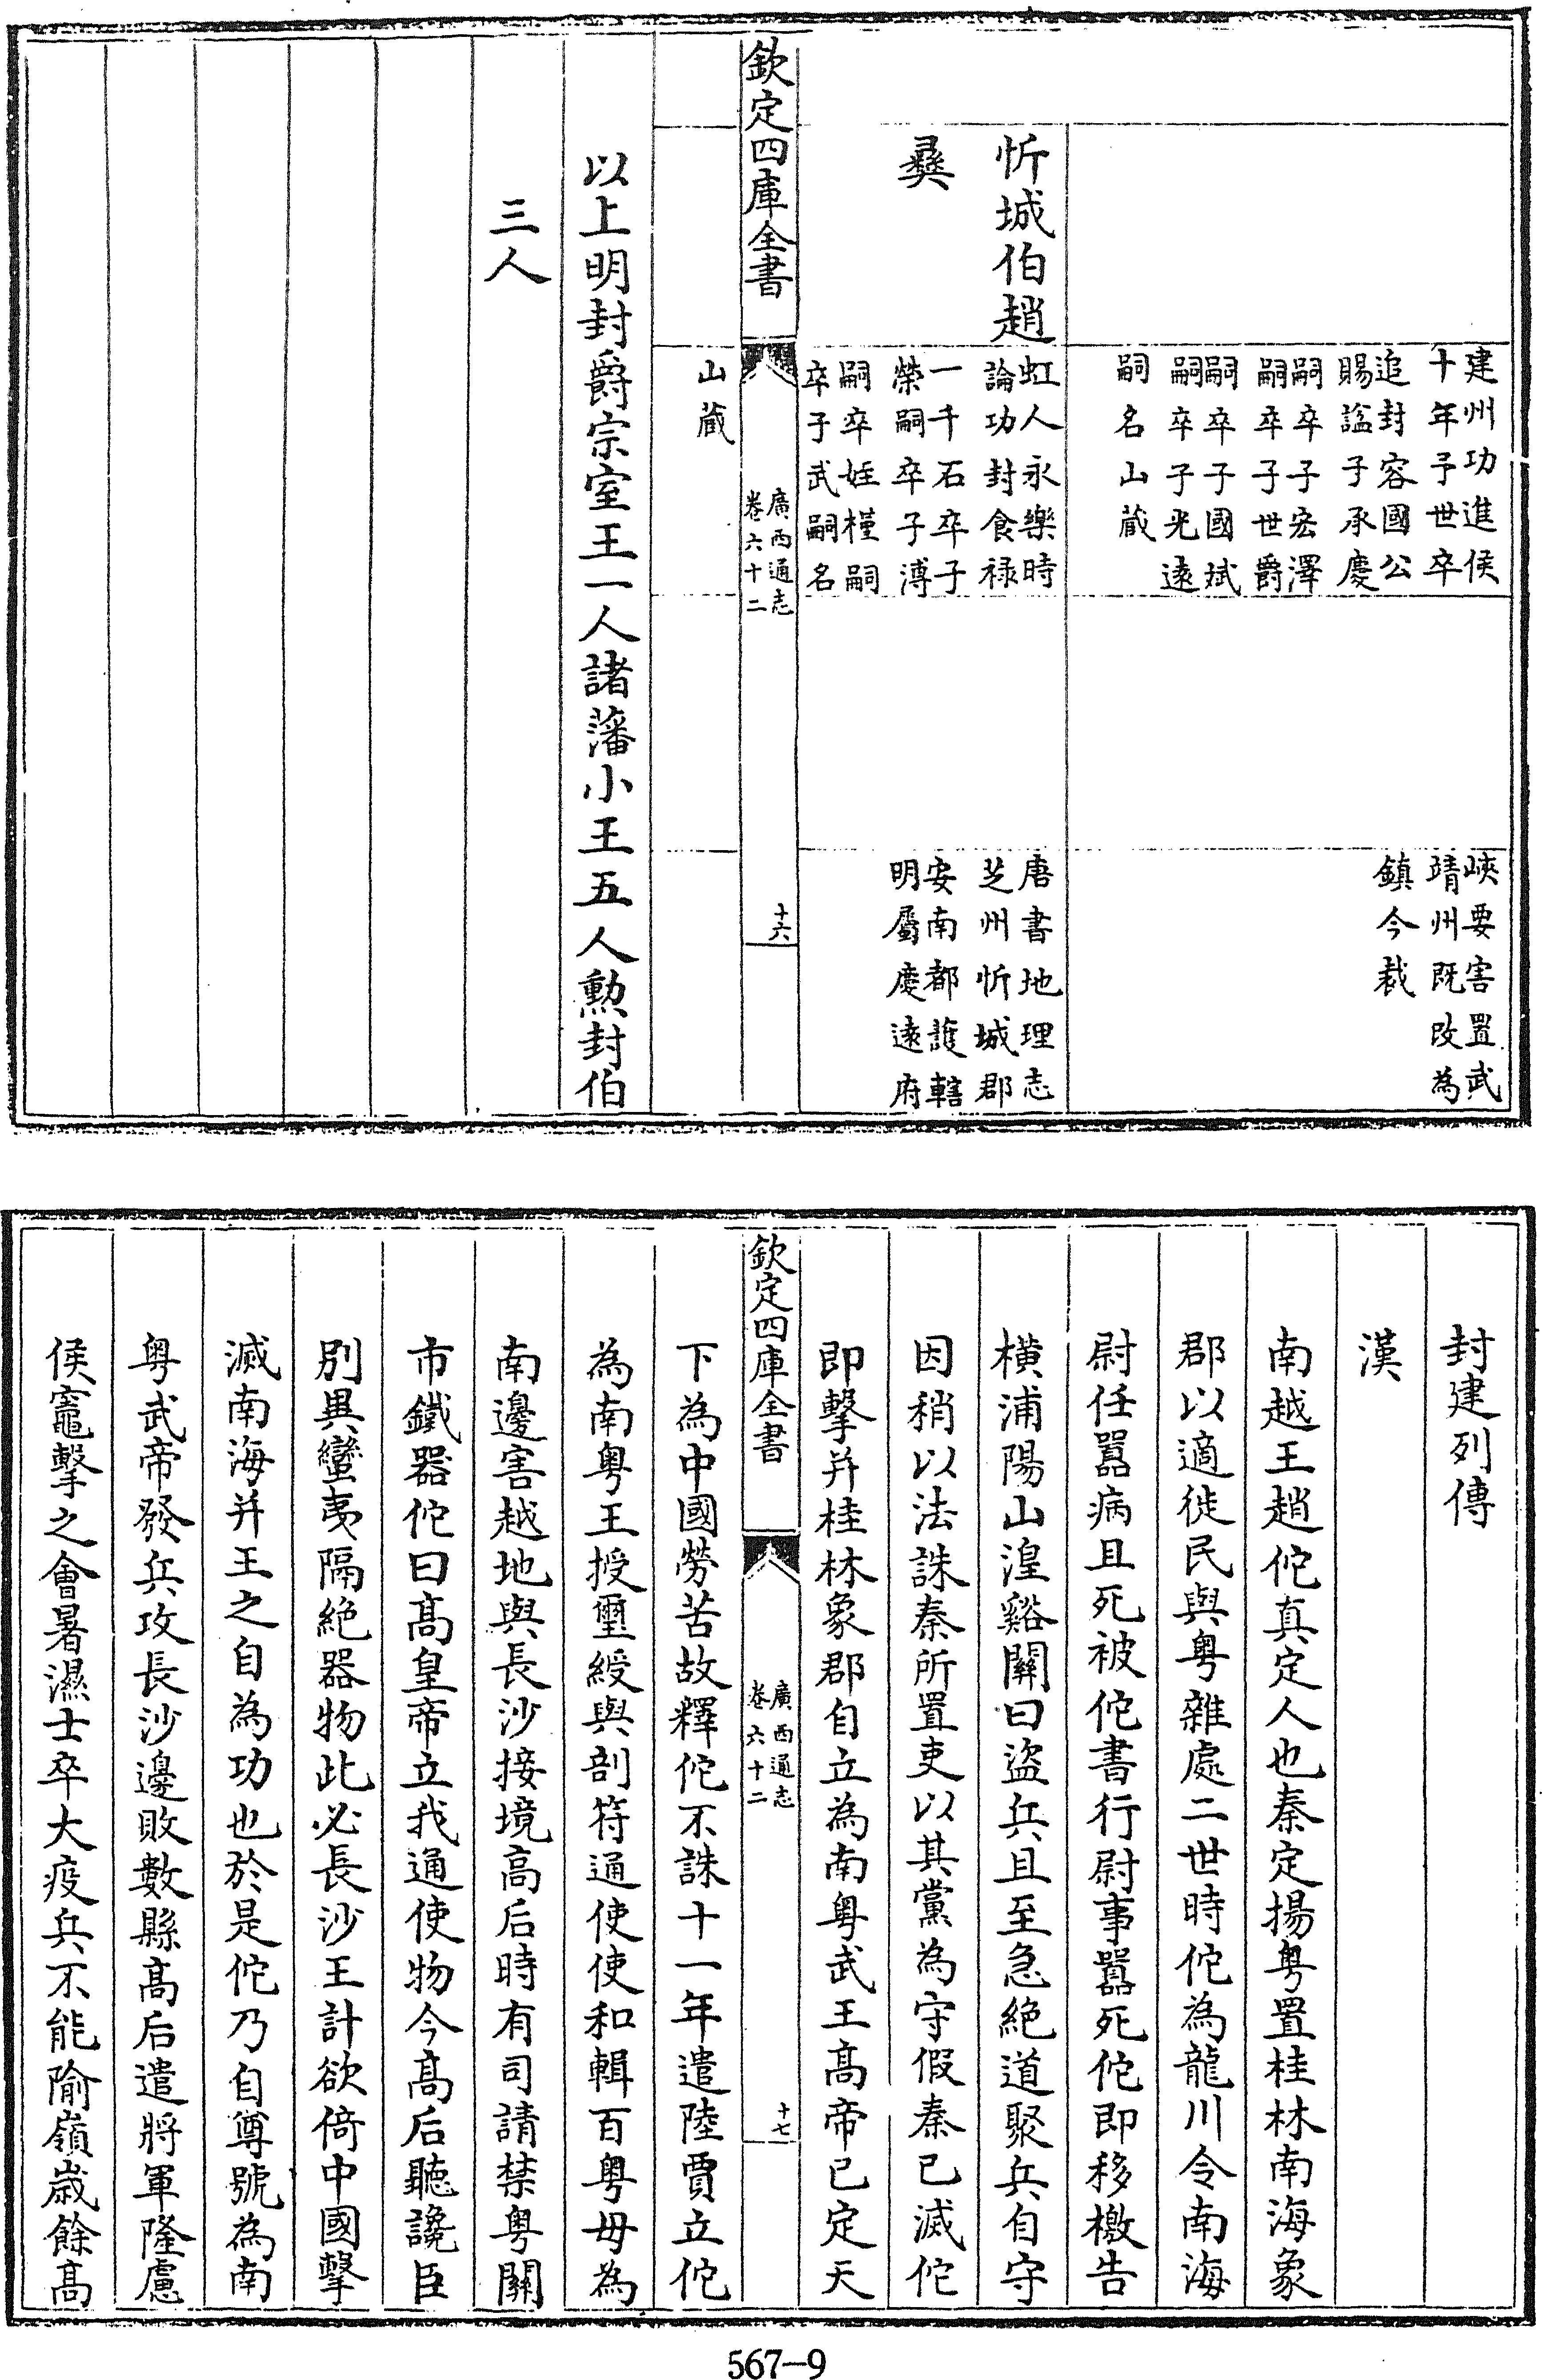 建州功進侯
十年予世卒
追封容國公
賜諡子承慶
嗣卒子宏澤
嗣卒子世爵
嗣卒子國斌
嗣卒子光遠
嗣名山藏
峽要害置武
靖州既改為
鎮今裁
忻城伯趙
彝
虹人永樂時
論功封食祿
一千石卒子
榮嗣卒子溥
嗣卒姪槿嗣
卒子武嗣名
唐書地理志
芝州忻城郡
安南都護轄
明屬慶遠府
欽定四庫全書
廣西通志
卷六十二
十六
山藏
以上明封爵宗室王一人諸藩小王五人勲封伯
三人
封建列傳
漢
南越王趙佗真定人也秦定揚粵置桂林南海象
郡以適徙民與粵雜處二世時佗為龍川令南海
尉任囂病且死被佗書行尉事囂死佗即移檄告
橫浦陽山湟谿關曰盜兵且至急絶道聚兵自守
因稍以法誅秦所置吏以其黨為守假秦已滅佗
即擊并桂林象郡自立為南粵武王髙帝已定天
欽定四庫全書
廣西通志
卷六十二
十七
下為中國勞苦故釋佗不誅十一年遣陸賈立佗
為南粵王授璽綬與剖符通使使和輯百粵毋為
南邊害越地與長沙接境高后時有司請禁粵關
市鐵器佗曰髙皇帝立我通使物今髙后聽讒臣
別異蠻夷隔絶器物此必長沙王計欲倚中國擊
滅南海并王之自為功也於是佗乃自尊號為南
粵武帝發兵攻長沙邊敗數縣髙后遣將軍隆慮
侯竈擊之會暑濕士卒大疫兵不能隃嶺歲餘髙
567-9